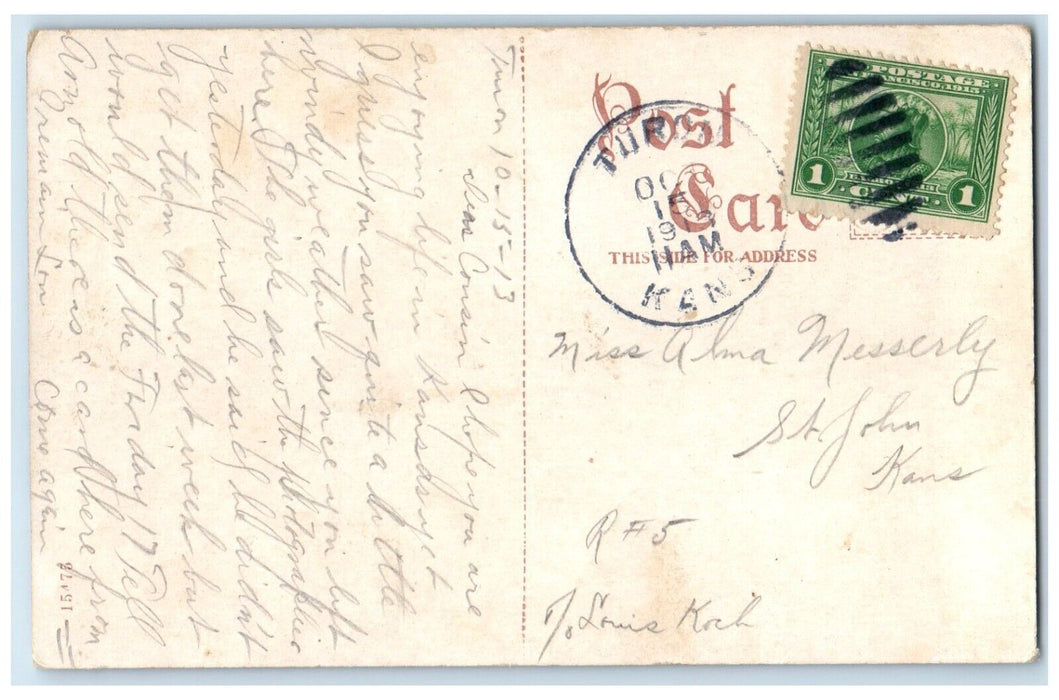 Turon 10-15-13
Dear Cousin I hope you are
enjoying life in Kansas yet
I guess you saw quite a little
windy weather since you left
here. The girls saw the photographer
yesterday and he said he didn't
get them done last week but
would send the Friday 17 Tell
any old there is a card here from
Freeman Lon Come again
15178
Post
Card
THIS SIDE FOR ADDRESS
TURON
OC
15
19
11AM
KANS
U.S. POSTAGE
SAN FRANCISCO, 1915
1 CENT 1
Miss Alma Messerly
St. John
Kans
R#5
c/o Louis Koch